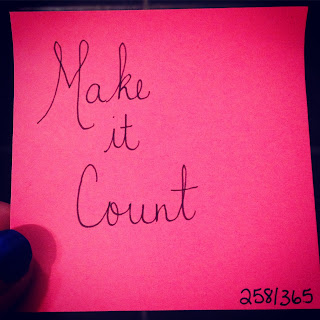 Make
it
Count
258/365